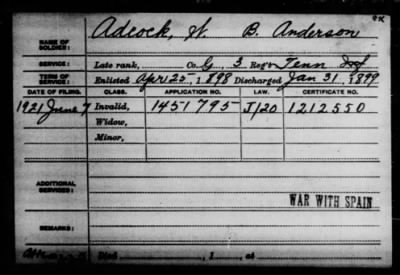 9x
NAME OF SOLDIER: Adcock, W. B. Anderson
SERVICE: Late rank, Co. G, 3 Reg't Tenn Inf
TERM OF SERVICE: Enlisted Apr 25, 1898 Discharged Jan 31, 1899
DATE OF FILING. CLASS. APPLICATION NO. LAW. CERTIFICATE NO.
1921 June 7 Invalid, 1451795 J/20 1212550
Widow,
Minor,
ADDITIONAL SERVICES:
WAR WITH SPAIN
REMARKS:
Died , 1 , at